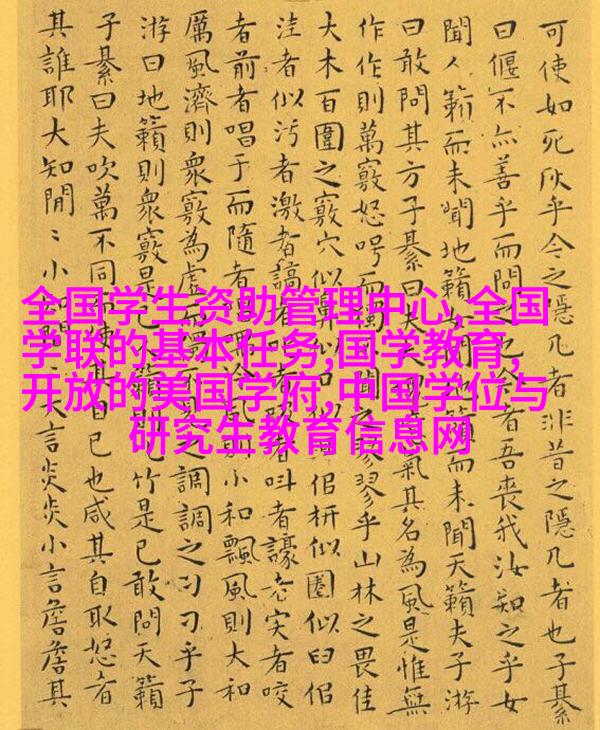 全国学生资助管理中心,全国
学联的基本任务,国学教育,
开放的美国学府,中国学位与
研究生教育信息网
可使如死灰乎今之隱几者非昔之隱几者也子綦
曰偃不亦善乎而問之今者吾喪我汝知之乎女
聞人籟而未聞地籟女聞地籟而未聞天籟夫子游
曰敢問其方子綦曰夫大氣其名為風是惟無
作作則萬竅怒呺而獨聞之翏翏乎山林之畏佳
大木百圍之竅穴似鼻似口佀枅似圈似臼佀
洼者似污者激者謞者吸者叫者譹者宎者咬
者前者唱于而隨者唱風則小和飄風則大和
厲風濟則衆竅為虛而獨不見之調調之刁刁乎子
游曰地籟則衆竅是已人籟則比竹是已敢問天籟
子綦曰夫吹萬不同而使其自已也咸其自取怒者
其誰耶大知閒〻小知閒〻大言炎炎小言詹詹其